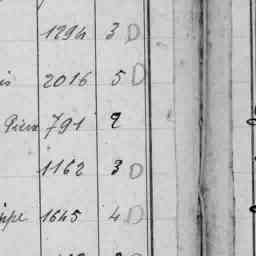 1294 3 D
is 2016 5 D
Pierre 791 2
1162 3 D
ippe 1645 4 D